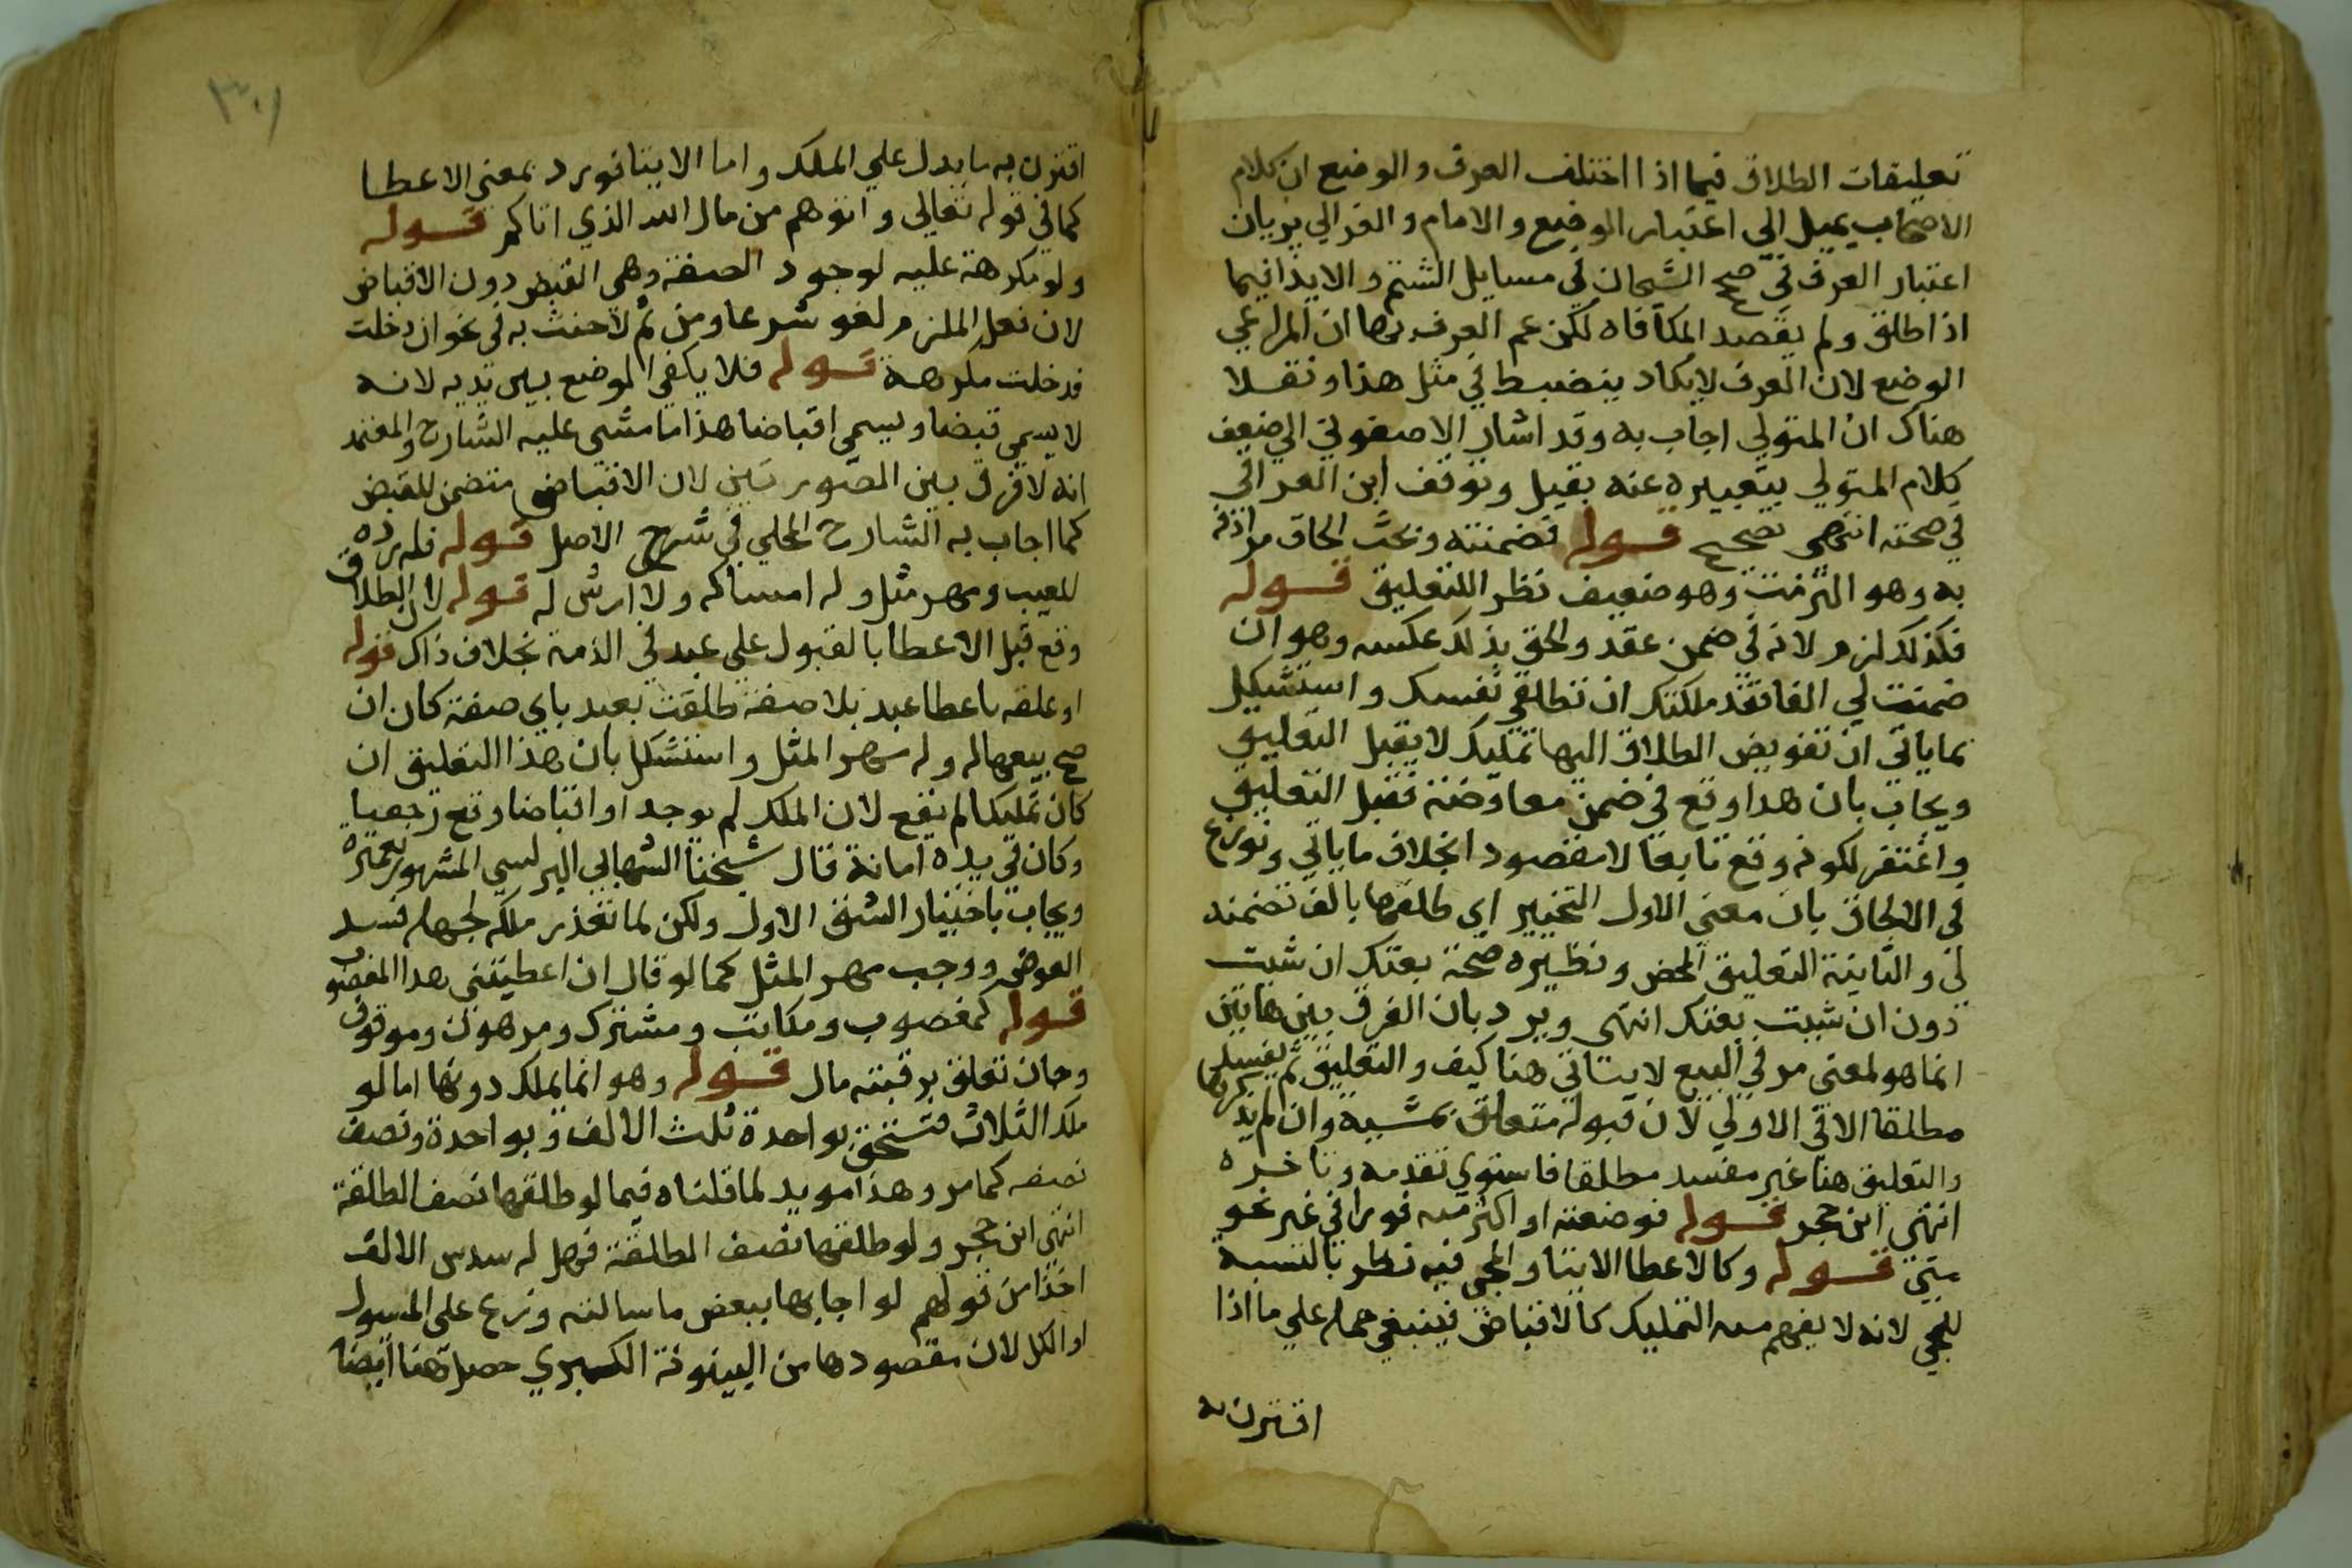 تعليقات الطلاق فيما اذا اختلف العرف والوضع ان كلام
الاصحاب يميل الى اعتبار الوضع والامام والغزالي يريان
اعتبار العرف صح الشيخان في مسايل الشتم والايذا فيما
اذا اطلق ولم يقصد المكافاه لكن عم العرف بها ان المراعي
الوضع لان العرف لا يكاد ينضبط في مثل هذا ونقلا
هناك ان المتولي اجاب به وقد اشار الاصفوني الي ضعف
كلام المتولي بتعبيره عنه بقيل وتوقف ابن العراقي
في صحته انتهى تصحيح قوله فضمنته وبحث الحاق مرادفه
به وهو التزمت وهو ضعيف نظر اللتعليق قوله
فكذلك لزم لانه في ضمن عقد والحق بذلك عكسه وهو ان
ضمنت لي الفا فقد ملكتك ان تطلقي نفسك واستشكل
بما ياتي ان تفويض الطلاق اليها تمليك لا يقبل التعليق
ويجاب بان هذا وقع في ضمن معاوضة فقبل التعليق
واغتفر لكونه وقع تابعا لا مقصود ابخلاف ما ياتي ونوزع
في الالحاق بان معنى الاول التخيير اي طلقها بالف تضمنه
لي والثانية التعليق المحض ونظيره صحة بعتك ان شئت
دون ان شئت بعتك انتهى ويرد بان الفرق بين هاتين
انما هو لمعنى مر في البيع لا يتاتى هنا كيف والتعليق ثم يفسد
مطلقا الا في الاولي لان قبوله متعلق بمشيه وان لم يذكرها
والتعليق هنا غير مفسد مطلقا فاستوي تقدمه وتاخره
انتهى ابن حجر قوله فوضعته او اكثر منه فورا في غير نحو
متى قوله وكالاعطا الايتا والمجي فيه نظر بالنسبة
للمجي لانه لا يفهم منه التمليك كالاقباض فينبغي حمله علي ما اذا
اقترن به
٣٠١
اقترن به ما يدل علي الملك واما الايتا فورد بمعنى الاعطا
كما في قوله تعالي واتوهم من مال الله الذي اتاكم قوله
ولو مكرهة عليه لوجود الصفة وهي القبض دون الاقباض
لان فعل الملزم لغو شرعا ومن ثم لا حنث به في نحو ان دخلت
فدخلت مكرهة قوله فلا يكفي الوضع بين يديه لانه
لا يسمى قبضا ويسمى اقباضا هذا ما مشى عليه الشارح والمعتمد
انه لا فرق بين الصورتين لان الاقباض متضمن للقبض
كما اجاب به الشارح المحلي في شرح الاصل قوله فله رده
للعيب ومهر مثل وله امساكه ولا ارش له قوله لان الطلاق
وقع قبل الاعطا بالقبول علي عبد في الذمة بخلاف ذاك قوله
او علقه باعطا عبد بلا صفة طلقت بعبد باي صفة كان ان
صح بيعها له وله مهر المثل واستشكل بان هذا التعليق ان
كان تمليكا لم يقع لان الملك لم يوجد او اقباضا وقع رجعيا
وكان في يده امانة قال شيخنا الشهابي البرلسي المشهور بعميرة
ويجاب باختيار الشق الاول ولكن لما تعذر ملكه لجهله فسد
العوض ووجب مهر المثل كما لو قال ان اعطيتني هذا المغصوب
قوله كمغصوب ومكاتب ومشترك ومرهون وموقوف
وجان تعلق برقبته مال قوله وهو انما يملك دونها اما لو
ملك الثلاث فتستحق بواحدة ثلث الالف وبواحدة ونصف
نصفه كما مر وهذا مويد لما قلناه فيما لو طلقها نصف الطلقة
انتهى ابن حجر ولو طلقها نصف الطلقة فهل له سدس الالف
اخذا من قولهم لو اجابها ببعض ما سالته وزع على المسول
او الكل لان مقصودها من البينونة الكبري حصل هنا ايضا